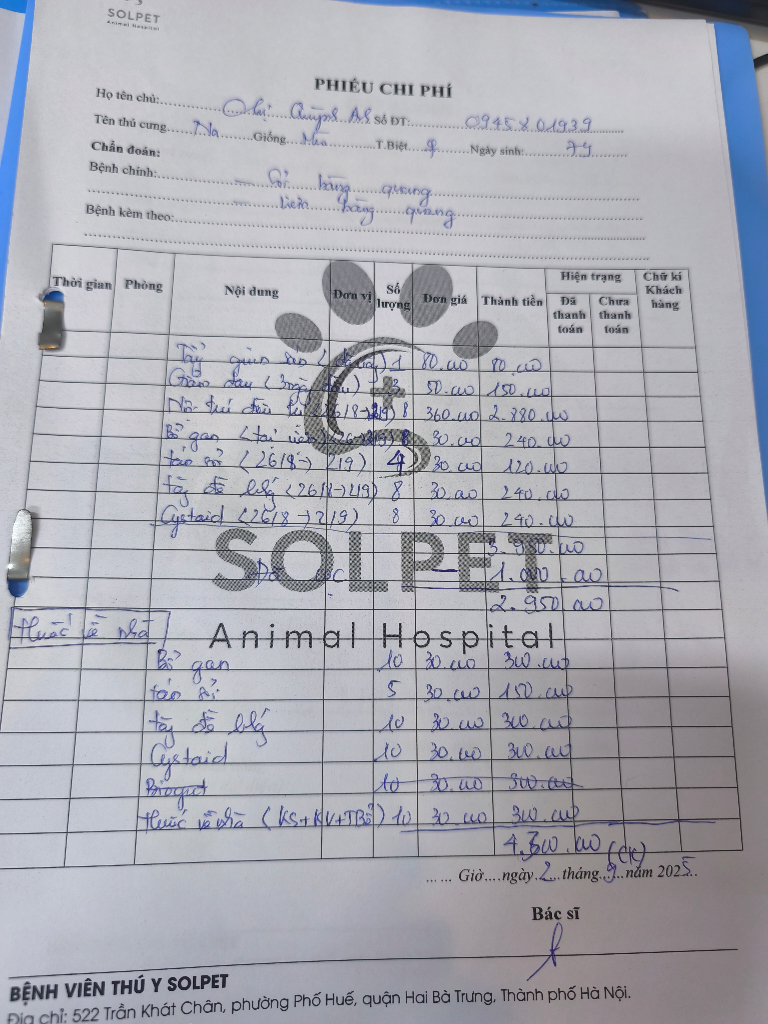 SOLPET
Animal Hospital
PHIẾU CHI PHÍ
Họ tên chủ: Chị Quỳnh AS Số ĐT:
Tên thú cưng Na Giống T.Biệt ♀ Ngày sinh: 7y
Chẩn đoán:
Bệnh chính: – Sỏi bàng quang
– Viêm bàng quang
Bệnh kèm theo:
Thời gian Phòng Nội dung Đơn vị Số lượng Đơn giá Thành tiền Hiện trạng Chữ kí Khách hàng
Đã thanh toán Chưa thanh toán
Tẩy giun sán 1 80.000 80.000
(3 ngày đầu) 3 50.000 150.000
Nội trú điều trị (26/8→2/9) 8 360.000 2.880.000
Bổ gan (26→2/9) 8 30.000 240.000
tán sỏi (26/8→2/9) 4 30.000 120.000
(26/8→2/9) 8 30.000 240.000
Cystaid (26/8→2/9) 8 30.000 240.000
3.950.000
– 1.000.000
2.950.000
SOLPET
Animal Hospital
thuốc về nhà
Bổ gan 10 30.000 300.000
tán sỏi 5 30.000 150.000
10 30.000 300.000
Cystaid 10 30.000 300.000
Biogut 10 30.000 300.000
thuốc về nhà (KS+KV+TBổ) 10 30.000 300.000
4.300.000 (CK)
...... Giờ....ngày 2 tháng 9 năm 2025
Bác sĩ
BỆNH VIÊN THÚ Y SOLPET
Địa chỉ: 522 Trần Khát Chân, phường Phố Huế, quận Hai Bà Trưng, Thành phố Hà Nội.